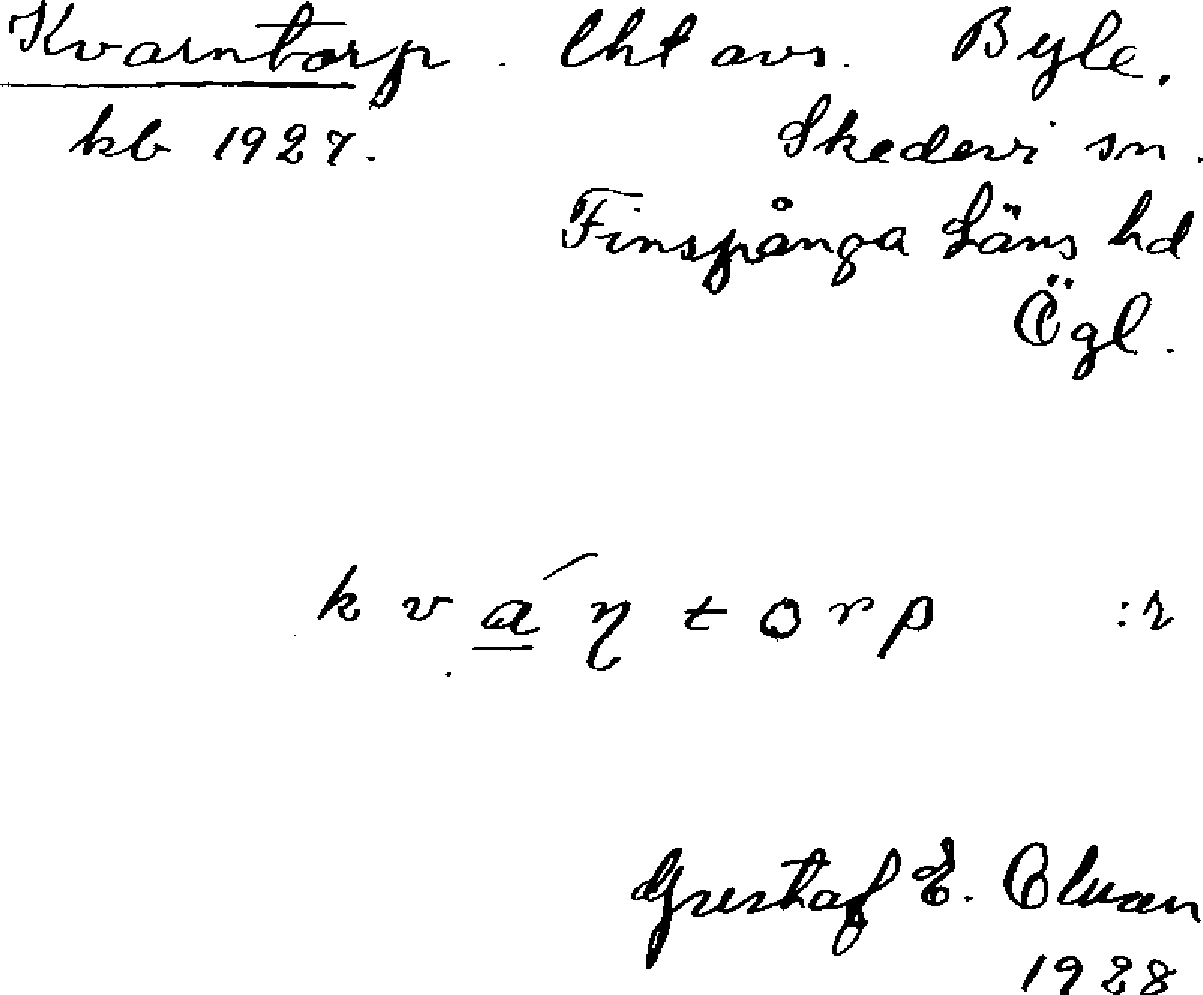 Kvarntorp. lht avs. Byle.
kb 1927. Skedevi sn.
Finspånga Läns hd
Ögl.
k v a ́ η t o r p :r
Gustaf E.
1928